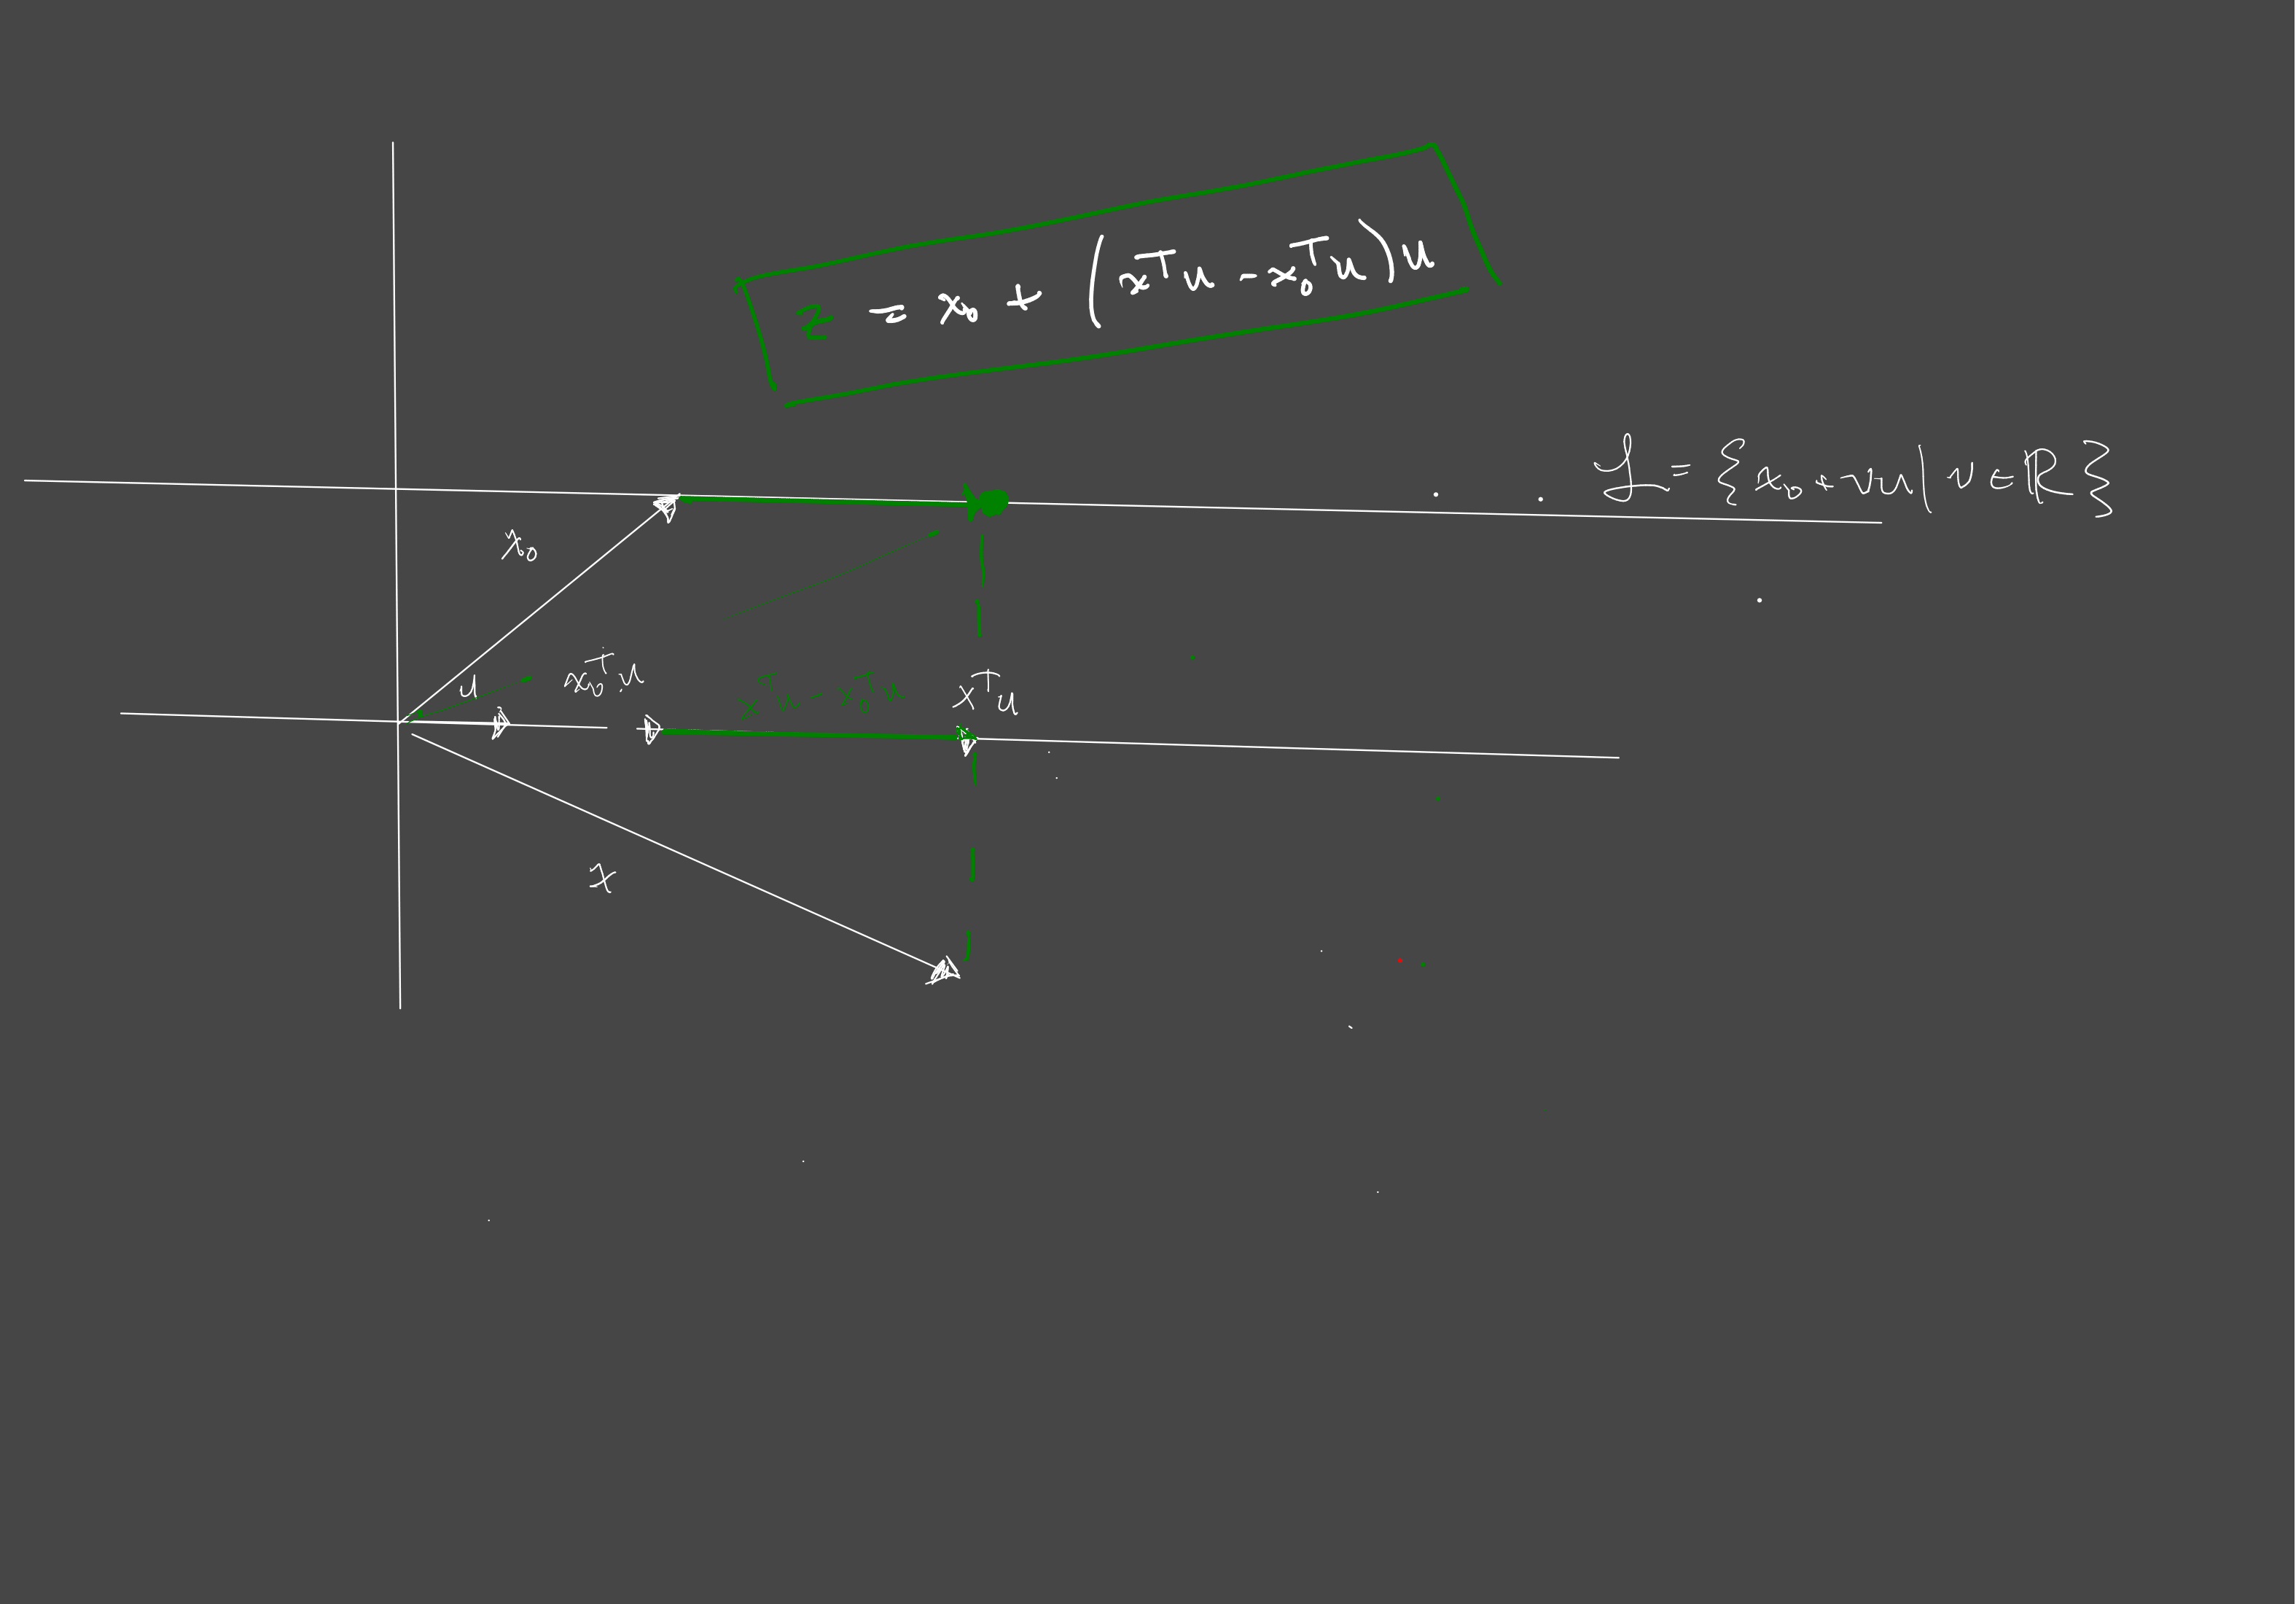 z = x₀ + (xᵀu - x₀ᵀu)u
L = {x₀ + νu | ν ∈ ℝ}
x₀
u
x₀ᵀu
xᵀu - x₀ᵀu
xᵀu
x